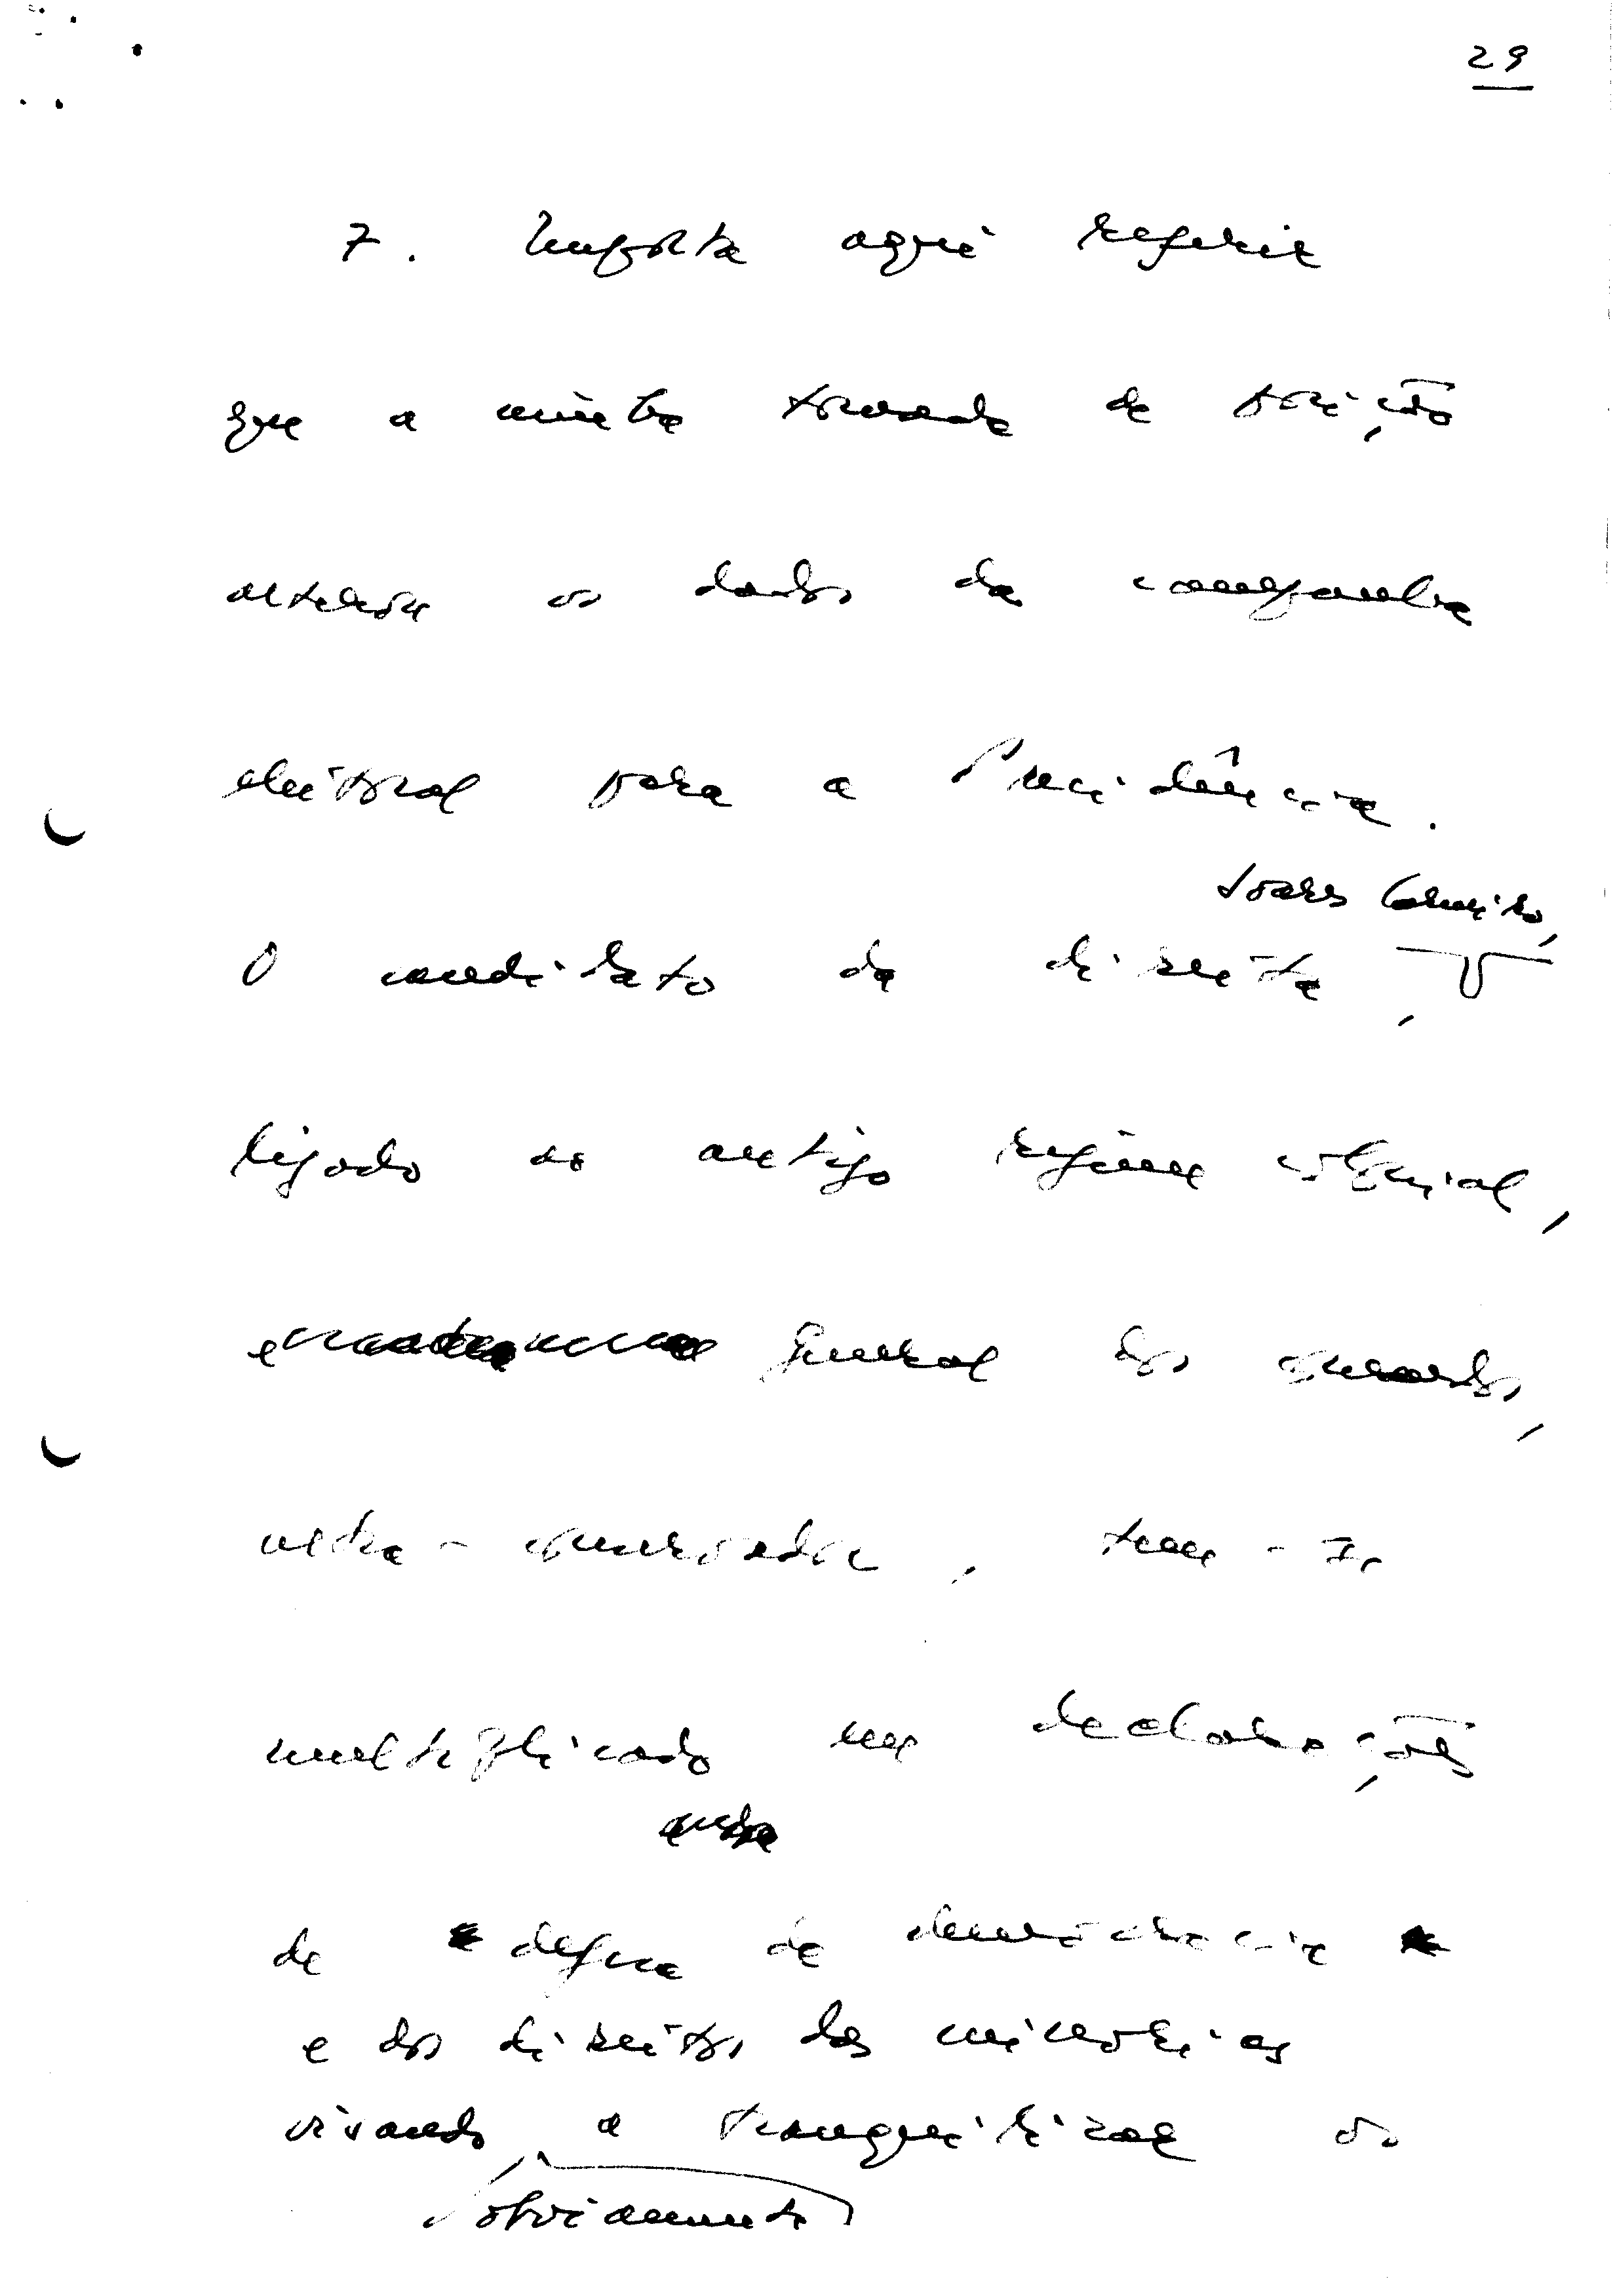 29
7. Importa aqui referir
que a minha tomada de posição
alterou os dados da campanha
eleitoral para a Presidência.
Soares Carneiro,
O candidato da direita,
ligado ao antigo regime colonial,
e general dos comandos,
ultra-conservador, tem-se
multiplicado em declarações
de defesa da democracia
e dos direitos das minorias
visando, a tranquilizar os
obviamente